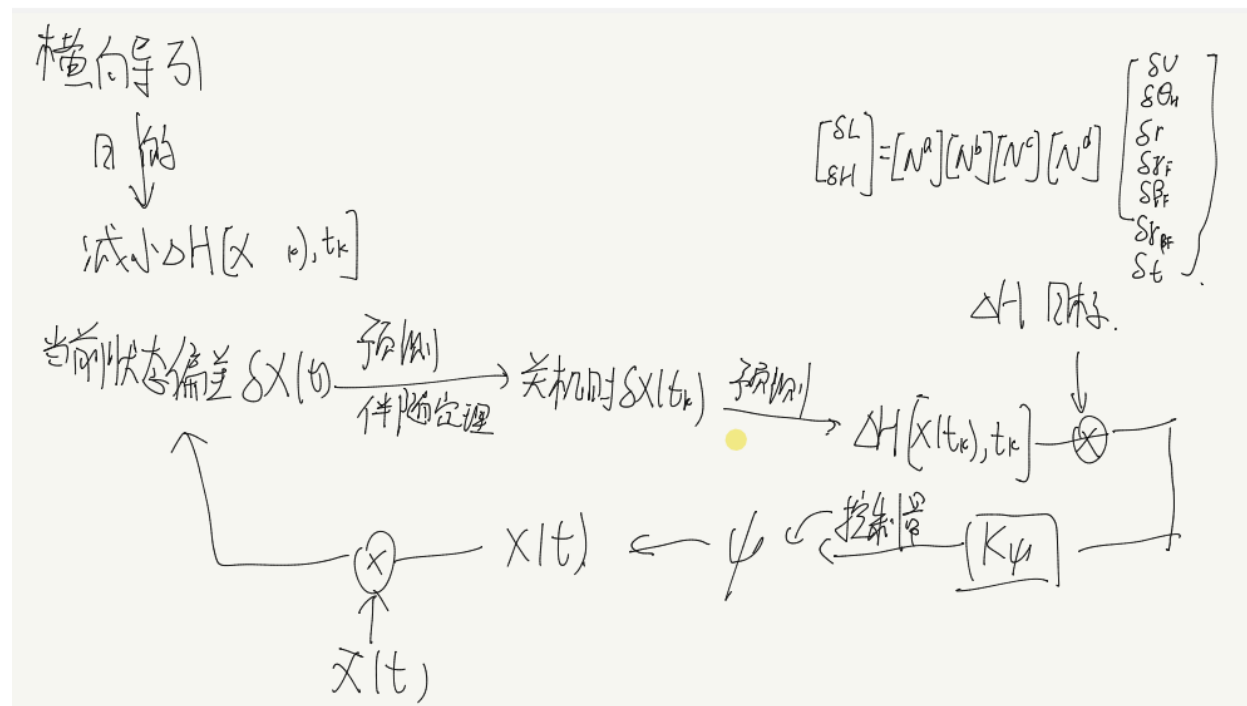 横向导引
目的
减小ΔH[X ),tₖ]
[δL δH]=[Nᵃ][Nᵇ][Nᶜ][Nᵈ]
δV
δθ_H
δr
δγ_F
δβ_F
δγ_βF
δt
ΔH 目标.
当前状态偏差δX(t) 预测 伴随定理 关机时δX(tₖ) 预测 ΔH[X(tₖ),tₖ] ⊗
X̄(t) ⊗ X(t) ← ψ 控制量 K_ψ